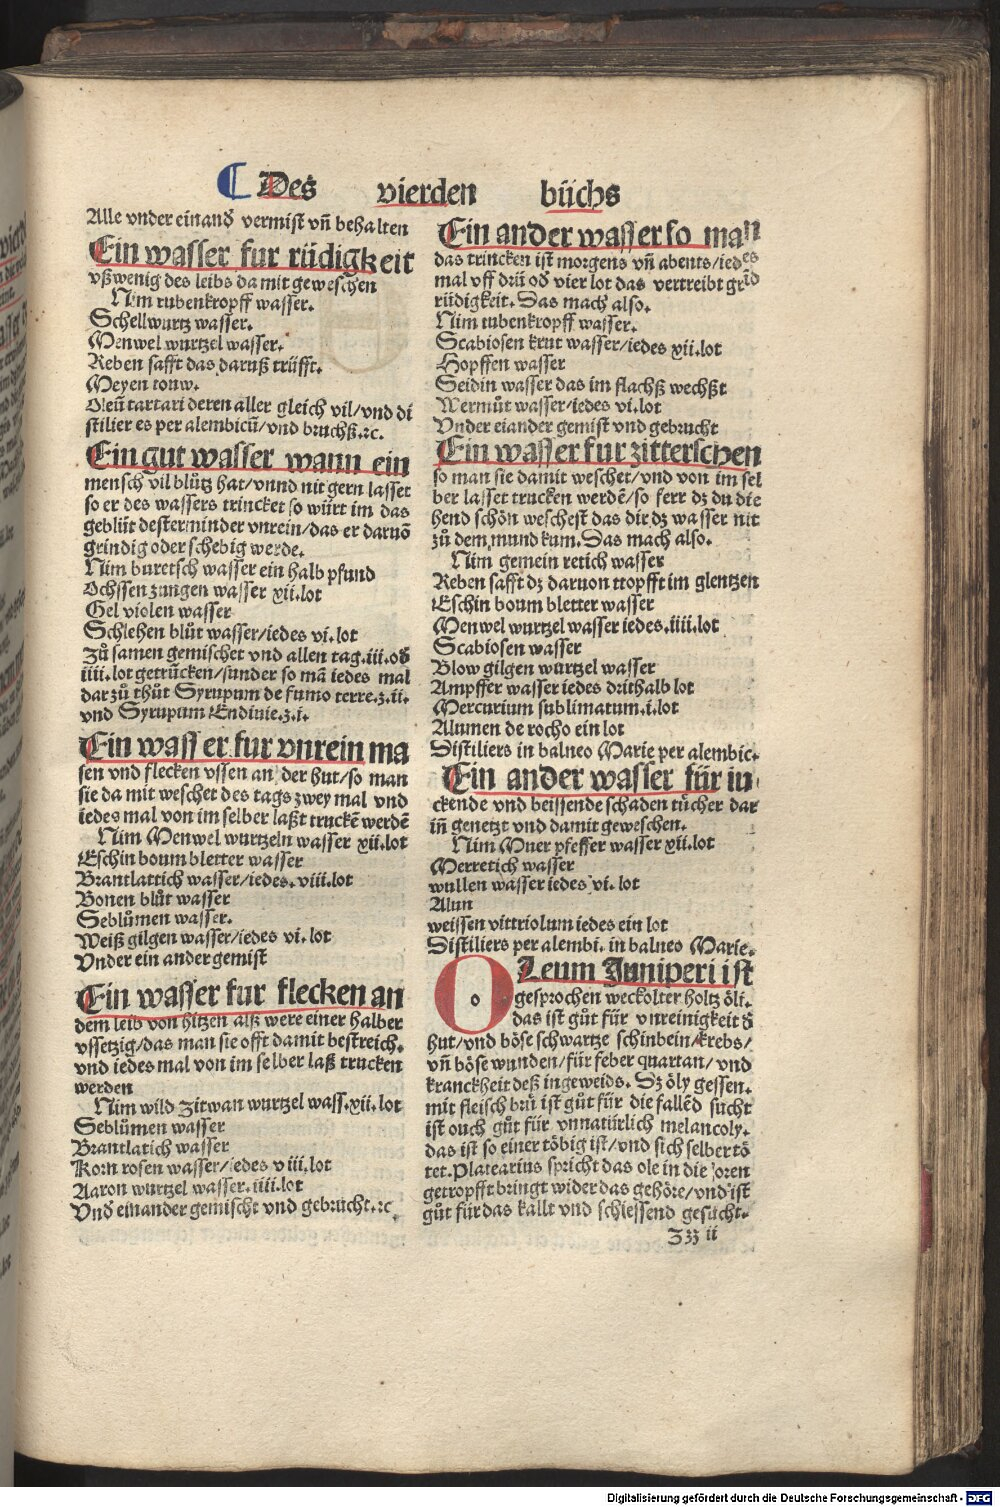 Des vierden bůchs
Alle vnder einanď vermist vñ behalten
Ein wasser fur rüdigkeit
vßwenig des leibs da mit geweschen
Nim tubenkropff wasser.
Schellwurtz wasser.
Menwel wurtzel wasser.
Reben safft das daruß trüfft.
Meyen touw.
Oleū tartari deren aller gleich vil/vnd di
stilier es per alembicū/vnd bruchß.⁊c.
Ein gut wasser wann ein
mensch vil blůtz hat/vnnd nit gern lasset
so er des wassers trincket so würt im das
geblüt desterminder vnrein/das er daruō
grindig oder schebig werde.
Nim buretsch wasser ein halb pfund
Ochssen zungen wasser xii.lot
Gel violen wasser
Schlehen blůt wasser/iedes vi.lot
Zů samen gemischet vnd allen tag.iii.oď
iiii.lot getruncken/sunder so mā iedes mal
dar zů thůt Syrupum de fumo terre.ʒ.ii.
vnd Syrupum Endiuie.ʒ.i.
Ein wasser fur vnrein ma
sen vnd flecken vssen an der hut/so man
sie da mit weschet des tags zwey mal vnd
iedes mal von im selber laßt truckē werdē
Nim Menwel wurtzeln wasser xii.lot
Eschin boum bletter wasser
Brantlattich wasser/iedes.viii.lot
Bonen blůt wasser
Seblůmen wasser.
Weiß gilgen wasser/iedes vi.lot
Vnder ein ander gemist
Ein wasser fur flecken an
dem leib von hitzen alß were einer halber
vssetzig/das man sie offt damit bestreich.
vnd iedes mal von im selber laß trucken
werden
Nim wild zitwan wurtzel wass.xii.lot
Seblůmen wasser
Brantlatich wasser
Korn rosen wasser/iedes viii.lot
Aaron wurtzel wasser.iiii.lot
Vnd einander gemischt vnd gebrucht.⁊c.
Ein ander wasser so man
das trincken ist morgens vñ abents/iedes
mal vff drü oď vier lot das vertreibt grīd
rüdigkeit. Das mach also.
Nim tubenkropff wasser.
Scabiosen krut wasser/iedes xii.lot
Hopffen wasser
Seidin wasser das im flachß wechßt
Wermůt wasser/iedes vi.lot
Vnder eiander gemist vnd gebrucht
Ein wasser fur zitterschen
so man sie damit weschet/vnd von im sel
ber lasset trucken werdē/so ferr dz du die
hend schön weschest das dir dz wasser nit
zů dem mund kum. Das mach also.
Nim gemein retich wasser
Reben safft dz daruon ttopfft im glentzen
Eschin boum bletter wasser
Menwel wurtzel wasser iedes.iiii.lot
Scabiosen wasser
Blow gilgen wurtzel wasser
Ampffer wasser iedes drithalb lot
Mercurium sublimatum.i.lot
Alumen de rocho ein lot
Distiliers in balneo Marie per alembic.
Ein ander wasser für iu
ckende vnd beissende schaden tůcher dar
in̄ genetzt vnd damit geweschen.
Nim Muer pfeffer wasser xii.lot
Merretich wasser
wullen wasser iedes vi.lot
Alun
weissen vittriolum iedes ein lot
Distiliers per alembi. in balneo Marie.
OLeum Juniperi ist
gesprochen weckolter holtz öli.
das ist gůt für vnreinigkeit ď
hut/vnd böse schwartze schinbein/krebs/
vñ böse wunden/für feber quartan/vnd
kranckheit deß ingeweids. Dz öly gessen.
mit fleisch brü ist gůt für die fallēd sucht
ist ouch gůt für vnnatürlich melancoly.
das ist so einer töbig ist/vnd sich selber tö
tet. Platearius spricht das ole in die oren
getropfft bringt wider das gehöre/vnd ist
gůt für das kallt vnd schiessend gesücht.
Zzz ii
Digitalisierung gefördert durch die Deutsche Forschungsgemeinschaft - DFG